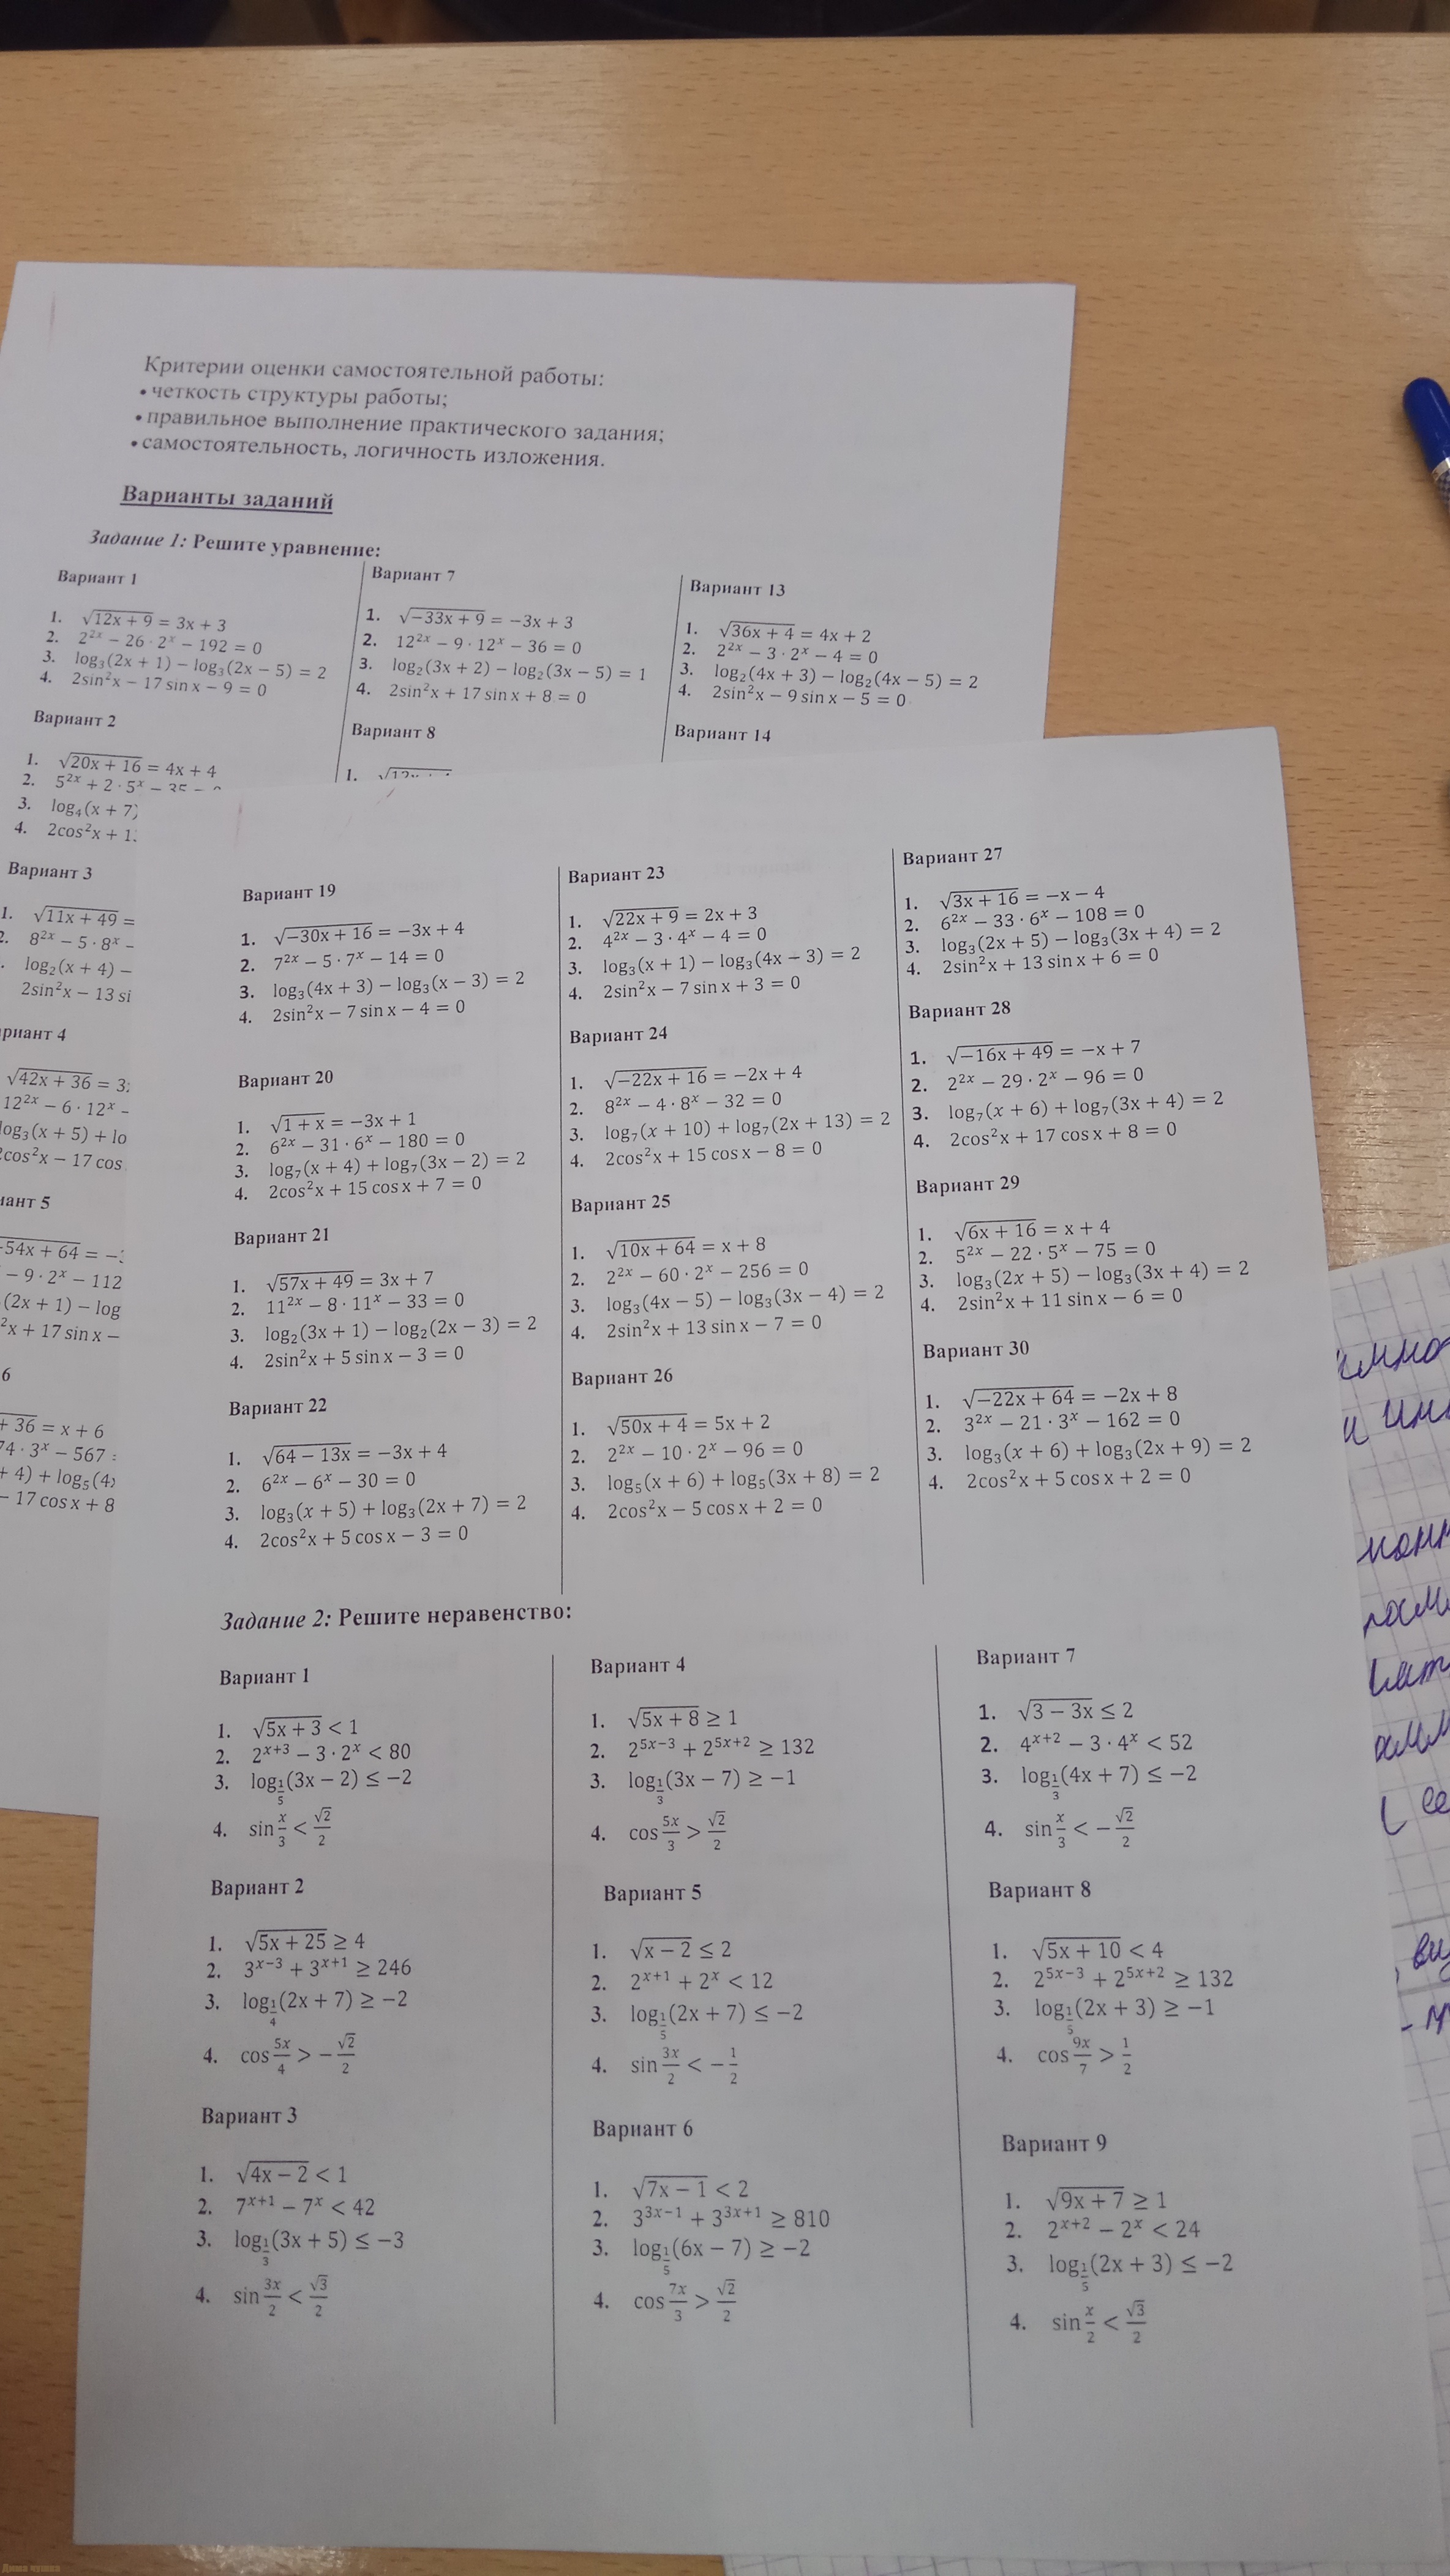 Критерии оценки самостоятельной работы:
• четкость структуры работы;
• правильное выполнение практического задания;
• самостоятельность, логичность изложения.
Варианты заданий
Задание 1: Решите уравнение:
Вариант 1
1. √(12x + 9) = 3x + 3
2. 2²ˣ − 26 · 2ˣ − 192 = 0
3. log₃(2x + 1) − log₃(2x − 5) = 2
4. 2sin²x − 17 sin x − 9 = 0
Вариант 2
1. √(20x + 16) = 4x + 4
2. 5²ˣ + 2 · 5ˣ − 35
3. log₄(x + 7)
4. 2cos²x + 1
Вариант 3
1. √(11x + 49) =
2. 8²ˣ − 5 · 8ˣ −
log₂(x + 4) −
2sin²x − 13 si
риант 4
√(42x + 36) = 3
12²ˣ − 6 · 12ˣ −
log₃(x + 5) + lo
cos²x − 17 cos
иант 5
54x + 64 = −
− 9 · 2ˣ − 112
(2x + 1) − log
²x + 17 sin x −
6
+ 36 = x + 6
74 · 3ˣ − 567
+ 4) + log₅(4
− 17 cos x + 8
Вариант 7
1. √(−33x + 9) = −3x + 3
2. 12²ˣ − 9 · 12ˣ − 36 = 0
3. log₂(3x + 2) − log₂(3x − 5) = 1
4. 2sin²x + 17 sin x + 8 = 0
Вариант 8
1.
Вариант 13
1. √(36x + 4) = 4x + 2
2. 2²ˣ − 3 · 2ˣ − 4 = 0
3. log₂(4x + 3) − log₂(4x − 5) = 2
4. 2sin²x − 9 sin x − 5 = 0
Вариант 14
Вариант 19
1. √(−30x + 16) = −3x + 4
2. 7²ˣ − 5 · 7ˣ − 14 = 0
3. log₃(4x + 3) − log₃(x − 3) = 2
4. 2sin²x − 7 sin x − 4 = 0
Вариант 20
1. √(1 + x) = −3x + 1
2. 6²ˣ − 31 · 6ˣ − 180 = 0
3. log₇(x + 4) + log₇(3x − 2) = 2
4. 2cos²x + 15 cos x + 7 = 0
Вариант 21
1. √(57x + 49) = 3x + 7
2. 11²ˣ − 8 · 11ˣ − 33 = 0
3. log₂(3x + 1) − log₂(2x − 3) = 2
4. 2sin²x + 5 sin x − 3 = 0
Вариант 22
1. √(64 − 13x) = −3x + 4
2. 6²ˣ − 6ˣ − 30 = 0
3. log₃(x + 5) + log₃(2x + 7) = 2
4. 2cos²x + 5 cos x − 3 = 0
Вариант 23
1. √(22x + 9) = 2x + 3
2. 4²ˣ − 3 · 4ˣ − 4 = 0
3. log₃(x + 1) − log₃(4x − 3) = 2
4. 2sin²x − 7 sin x + 3 = 0
Вариант 24
1. √(−22x + 16) = −2x + 4
2. 8²ˣ − 4 · 8ˣ − 32 = 0
3. log₇(x + 10) + log₇(2x + 13) = 2
4. 2cos²x + 15 cos x − 8 = 0
Вариант 25
1. √(10x + 64) = x + 8
2. 2²ˣ − 60 · 2ˣ − 256 = 0
3. log₃(4x − 5) − log₃(3x − 4) = 2
4. 2sin²x + 13 sin x − 7 = 0
Вариант 26
1. √(50x + 4) = 5x + 2
2. 2²ˣ − 10 · 2ˣ − 96 = 0
3. log₅(x + 6) + log₅(3x + 8) = 2
4. 2cos²x − 5 cos x + 2 = 0
Вариант 27
1. √(3x + 16) = −x − 4
2. 6²ˣ − 33 · 6ˣ − 108 = 0
3. log₃(2x + 5) − log₃(3x + 4) = 2
4. 2sin²x + 13 sin x + 6 = 0
Вариант 28
1. √(−16x + 49) = −x + 7
2. 2²ˣ − 29 · 2ˣ − 96 = 0
3. log₇(x + 6) + log₇(3x + 4) = 2
4. 2cos²x + 17 cos x + 8 = 0
Вариант 29
1. √(6x + 16) = x + 4
2. 5²ˣ − 22 · 5ˣ − 75 = 0
3. log₃(2x + 5) − log₃(3x + 4) = 2
4. 2sin²x + 11 sin x − 6 = 0
Вариант 30
1. √(−22x + 64) = −2x + 8
2. 3²ˣ − 21 · 3ˣ − 162 = 0
3. log₃(x + 6) + log₃(2x + 9) = 2
4. 2cos²x + 5 cos x + 2 = 0
Задание 2: Решите неравенство:
Вариант 1
1. √(5x + 3) < 1
2. 2ˣ⁺³ − 3 · 2ˣ < 80
3. log_(1/5)(3x − 2) ≤ −2
4. sin x/3 < √2/2
Вариант 2
1. √(5x + 25) ≥ 4
2. 3ˣ⁻³ + 3ˣ⁺¹ ≥ 246
3. log_(1/4)(2x + 7) ≥ −2
4. cos 5x/4 > −√2/2
Вариант 3
1. √(4x − 2) < 1
2. 7ˣ⁺¹ − 7ˣ < 42
3. log_(1/3)(3x + 5) ≤ −3
4. sin 3x/2 < √3/2
Вариант 4
1. √(5x + 8) ≥ 1
2. 2⁵ˣ⁻³ + 2⁵ˣ⁺² ≥ 132
3. log_(1/3)(3x − 7) ≥ −1
4. cos 5x/3 > √2/2
Вариант 5
1. √(x − 2) ≤ 2
2. 2ˣ⁺¹ + 2ˣ < 12
3. log_(1/5)(2x + 7) ≤ −2
4. sin 3x/2 < −1/2
Вариант 6
1. √(7x − 1) < 2
2. 3³ˣ⁻¹ + 3³ˣ⁺¹ ≥ 810
3. log_(1/5)(6x − 7) ≥ −2
4. cos 7x/3 > √2/2
Вариант 7
1. √(3 − 3x) ≤ 2
2. 4ˣ⁺² − 3 · 4ˣ < 52
3. log_(1/3)(4x + 7) ≤ −2
4. sin x/3 < −√2/2
Вариант 8
1. √(5x + 10) < 4
2. 2⁵ˣ⁻³ + 2⁵ˣ⁺² ≥ 132
3. log_(1/5)(2x + 3) ≥ −1
4. cos 9x/7 > 1/2
Вариант 9
1. √(9x + 7) ≥ 1
2. 2ˣ⁺² − 2ˣ < 24
3. log_(1/5)(2x + 3) ≤ −2
4. sin x/2 < √3/2